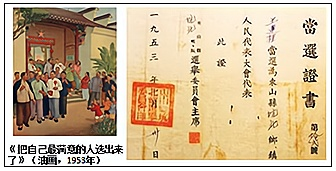 《把自己最满意的人选出来
了》（油画，1953年）
當選證書
第 號
當選為東山縣 鄉鎮
人民代表大會代表
此證
選舉委員會主席
一九五三年 月 卅日